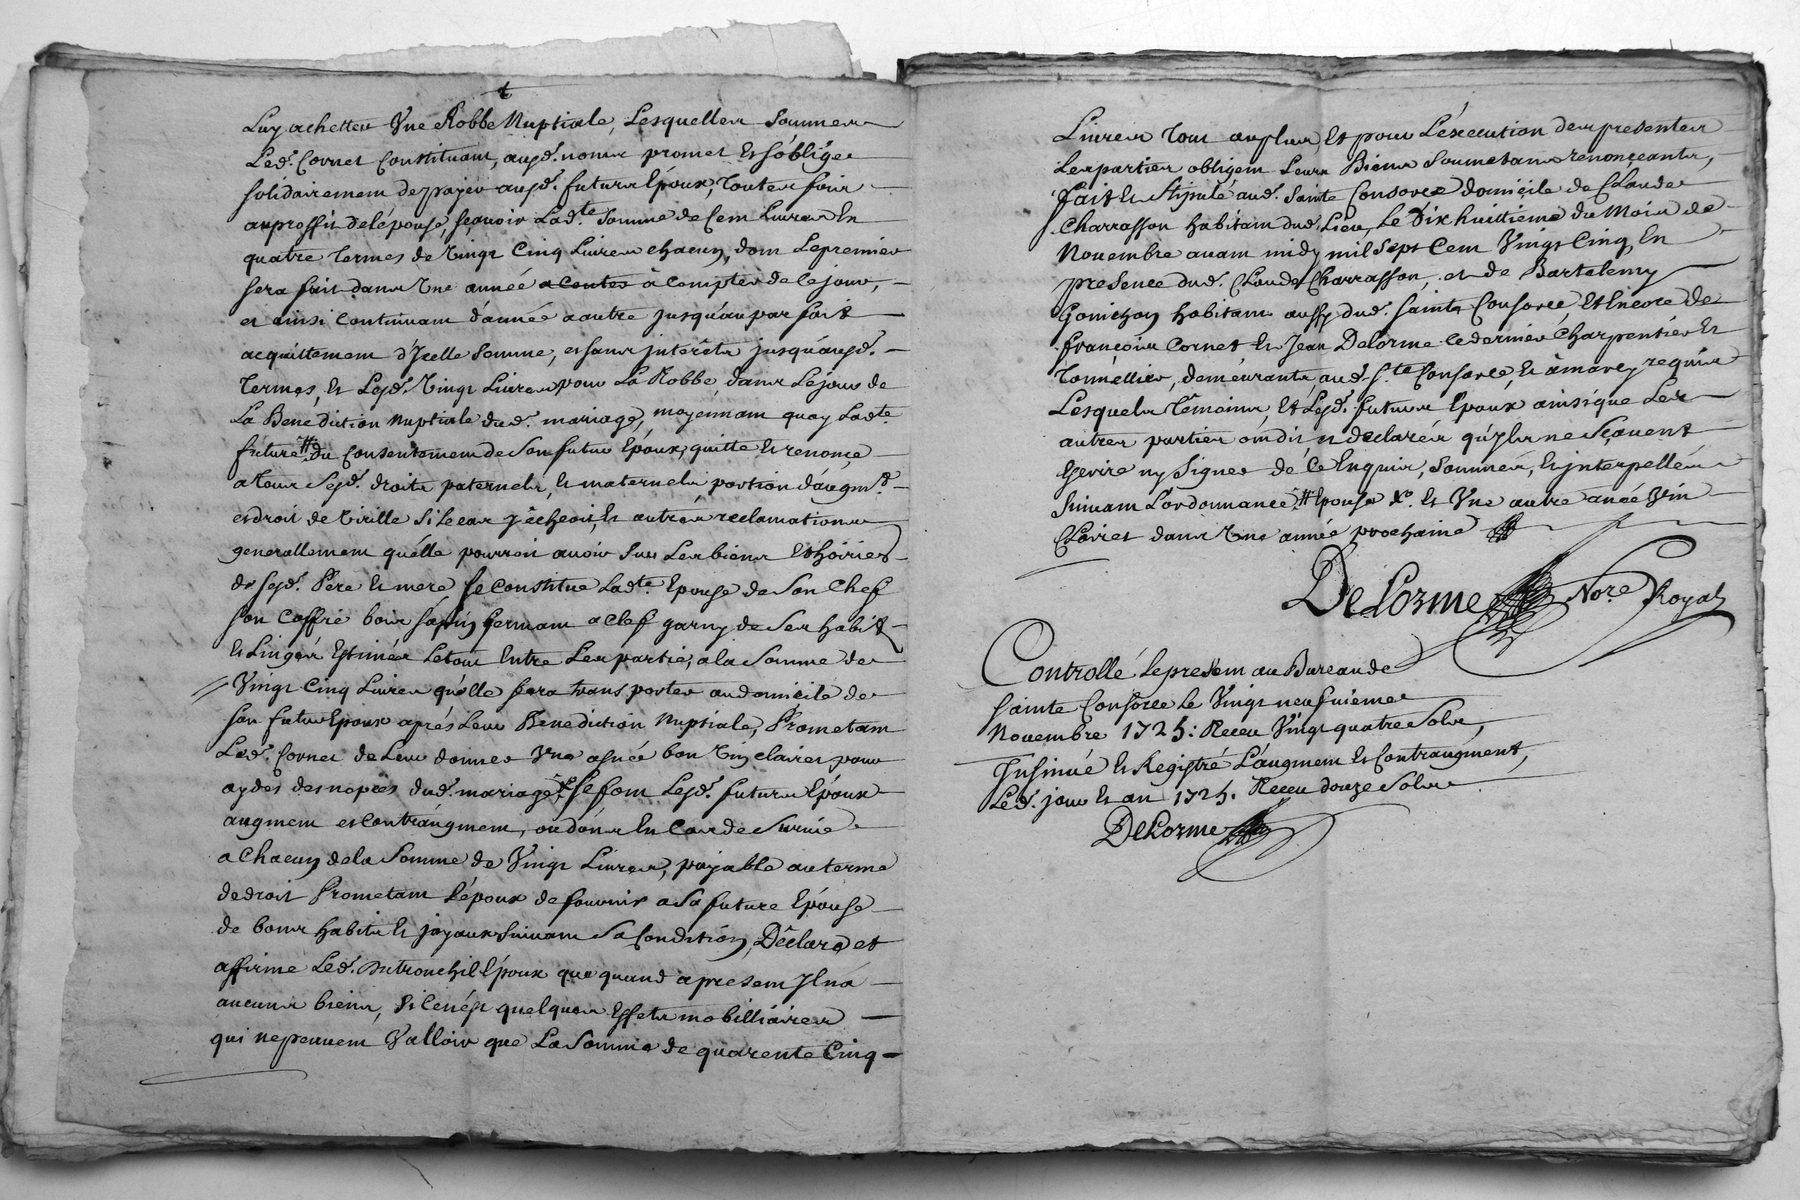 Luy achetter Vne Robbe Nuptiale, Lesquelles Sommes
Led. Cornet Constituant, ausd. noms promet Et s'oblige
solidairement de payer ausd. futurs Epoux, Toutes fois
au proffit de l'épouse, sçavoir Lad.te Somme de Cent Livres En
quatre Termes de Vingt Cinq Livres chacun, dont Le premier
sera fait dans Vne année a contes à compter de Ce jour,
et ainsi continuant d'année a autre jusqu'au parfait
acquittement d'Jcelle Somme, et sans jnterêts jusqu'ausd.
Termes, Et Lesd. Vingt Livres pour La Robbe, dans Le jour de
La Benediction Nuptiale dud. mariage, moyennant quoy Lad.te
future # du Consentement de Son futur Epoux, quitte Et renonçe
a tous Sesd. droits paternels, Et maternels portion d'augm.t
et droit de Virille Si Le cas y êcheoit, Et autres reclamations
generallement qu'elle pourroit avoir Sur Les biens Et hoiries
de sesd. Pere Et mere Se Constitue Lad.te Epouse de Son Chef
son Coffre bois sapin fermant a Clef garny de Ses habits
Et Linges Estimés Le tout Entre Les partie, a la Somme de
Vingt Cinq Livres qu'elle fera transporter au domicile de
son futur Epoux aprés Leur Benediction Nuptiale, Prometant
Led. Cornet de Leur donner Vne asnée bon Vin clairet pour
aydes des nopces dud. mariage, Se font Lesd. futurs Epoux
augment et contraugment, ou dons En Cas de Survie
a Chacun de la Somme de Vingt Livres, payable au terme
de droit Prometant l'époux de fournir a Sa future Epouse
de bons habits Et joyaux Suivant Sa Condition, Déclare, et
affirme Led. Epoux que quand a present Jl n'a
aucuns biens, Si Ce n'est quelques Effets mobilliaires
qui ne peuvent Valloir que La Somme de quarente Cinq
Livres Tout au plus Et pour L'éxecution des presentes
Les parties obligent Leurs Biens Soumetans renonçeants,
fait Et Stipulé aud. Sainte Consorce domicile de Claude
Charrasson habitant dud. Lieu, Le Dix huittieme du Mois de
Novembre avant midy mil Sept Cent Vingt Cinq, En
presence dud. Claude Charrasson, et de Bartelemy
Gonichon habitant aussy dud. Sainte Consorce Et Encore de
françois Cornet Et Jean DeLorme Ce dernier Charpentier Et
Tonnellier, demeurants aud. S.te Consorce, Et requis
Lesquels Têmoins, Et Lesd. futurs Epoux ainsi que Les
autres parties ont dit declarés qu'Jls ne Sçavent
Escrire ny Signer de Ce Enquis, Sommés, Et jnterpellés
Suivant L'ordonnance, # Epouse Et Vne autre anée Vin
Clairet dans Vne année prochaine
DeLorme No.re Royal
Controllé Le present au Bureau de
Sainte Consorce Le Vingt neufuieme
Novembre 1725: Receu Vingt quatre Sols,
Jnsinué Et Registré L'augment Et Contraugment,
Led. jour Et an 1725. Receu douze Sols
DeLorme